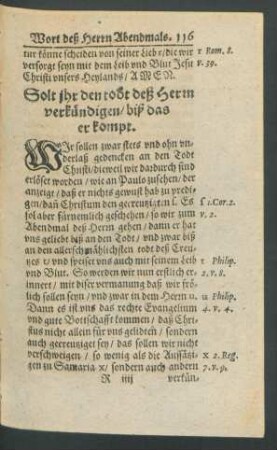 Wort deß Herrn Abendmals. 116
tur könne scheiden von seiner Liebr/die wir r Rom. 8.
versorgt seyn mit dem Leib und Blut Jesu v. 39.
Christi unsers Heylands/ AMEN.
Solt jhr den todt deß Herrn
verkündigen/ biß das
er kompt.
WIr sollen zwar stets und ohn un-
derlaß gedencken an den Todt
Christi/dieweil wir dardurch sind
erlöset worden/ wie an Paulo zusehen/ der
anzeigt/ daß er nichts gewust hab zu predi-
gen/ dañ Christum den gecreutzigten s. Es s 1. Cor. 2.
sol aber fürnemlich geschehen/ so wir zum v. 2.
Abendmal deß Herrn gehen/ dann er hat
uns geliebt biß an den Todt/ und zwar biß
an den allerschmählichsten todt deß Creu-
tzes t/ und speiset uns auch mit seinem leib t Philip.
und Blut. So werden wir nun erstlich er- 2. v. 8.
innert/ mit diser vermanung daß wir frö-
lich sollen seyn/ und zwar in dem Herrn u. u Philip.
Dann es ist uns das rechte Evangelium 4. v. 4.
und gute Bottschafft kommen/ daß Chri-
stus nicht allein für uns gelidten/ sondern
auch gecreutziget sey/ das sollen wir nicht
verschweigen/ so wenig als die Aussätzi- x 2. Reg.
gen zu Samaria x/ sondern auch andern 7. v. 9.
R iiij verkün-